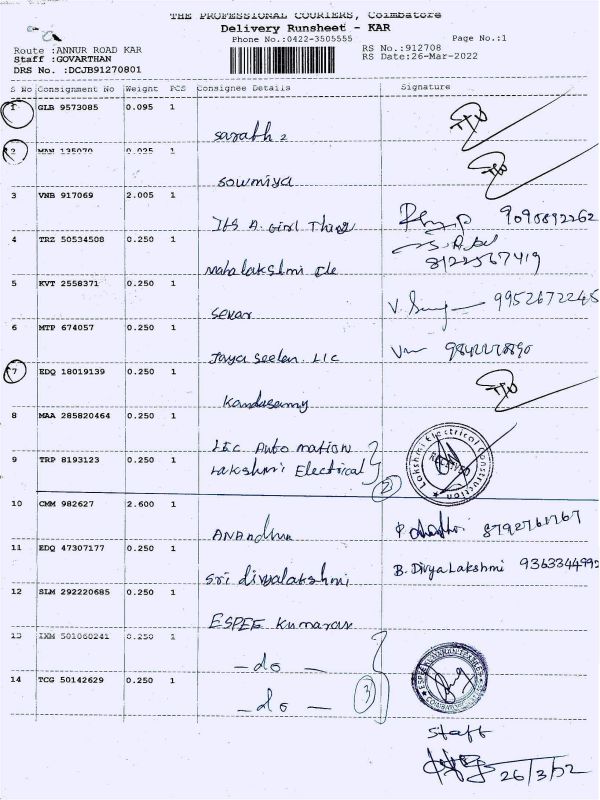 THE PROFESSIONAL COURIERS, Coimbatore
Delivery Runsheet - KAR
Phone No.:0422-3505555
Page No.:1
Route :ANNUR ROAD KAR
RS No.:912708
Staff :GOVARTHAN
RS Date:26-Mar-2022
DRS No. :DCJB91270801
S No Consignment No Weight PCS Consignee Details Signature
1 GLB 9573085 0.095 1
Sarabh 2
2 MAN 135070 0.025 1
Sowmiya
3 VNB 917069 2.005 1
Its A. Girl Thing 9090892262
4 TRZ 50534508 0.250 1
Mahalakshmi Ele 8122567419
5 KVT 2558371 0.250 1
Sekar 9952672245
6 MTP 674057 0.250 1
Jaya Seelan. LIC
7 EDQ 18019139 0.250 1
Kandasamy
8 MAA 285820464 0.250 1
LIC Automation
9 TRP 8193123 0.250 1
Lakshmi Electrical
2
Lakshmi Electrical Construction
RECEIVED
10 CMM 982627 2.600 1
11 EDQ 47307177 0.250 1
Sri divyalakshmi B. Divya Lakshmi 9363344992
12 SLM 292220685 0.250 1
ESPEE Kumaran
13 IXM 501060241 0.250 1
- do -
14 TCG 50142629 0.250 1
- do -
3
Staff
26/3/22